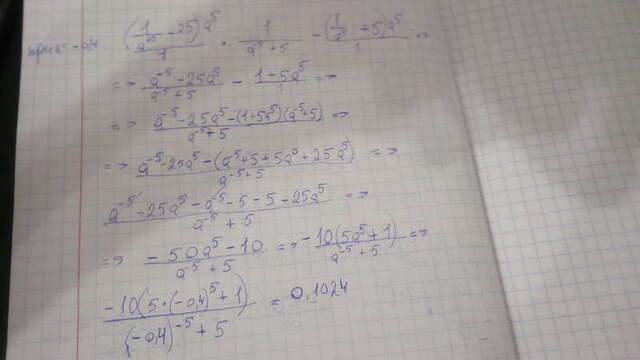 при a=-0,4 (1/a¹⁰ - 25)a⁵/1 · 1/(a⁻⁵+5) - (1/a⁵ + 5)a⁵/1 =>
=> (a⁻⁵-25a⁵)/(a⁻⁵+5) - (1-5a⁵)/1 =>
=> (a⁻⁵-25a⁵-(1+5a⁵)(a⁻⁵+5))/(a⁻⁵+5) =>
=> (a⁻⁵-25a⁵-(a⁻⁵+5+5a⁰+25a⁵))/(a⁻⁵+5) =>
(a⁻⁵-25a⁵-a⁻⁵-5-5-25a⁵)/(a⁻⁵+5) =>
=> (-50a⁵-10)/(a⁻⁵+5) => -10(5a⁵+1)/(a⁻⁵+5) =>
-10(5·(-0,4)⁵+1)/((-0,4)⁻⁵+5) = 0,1024